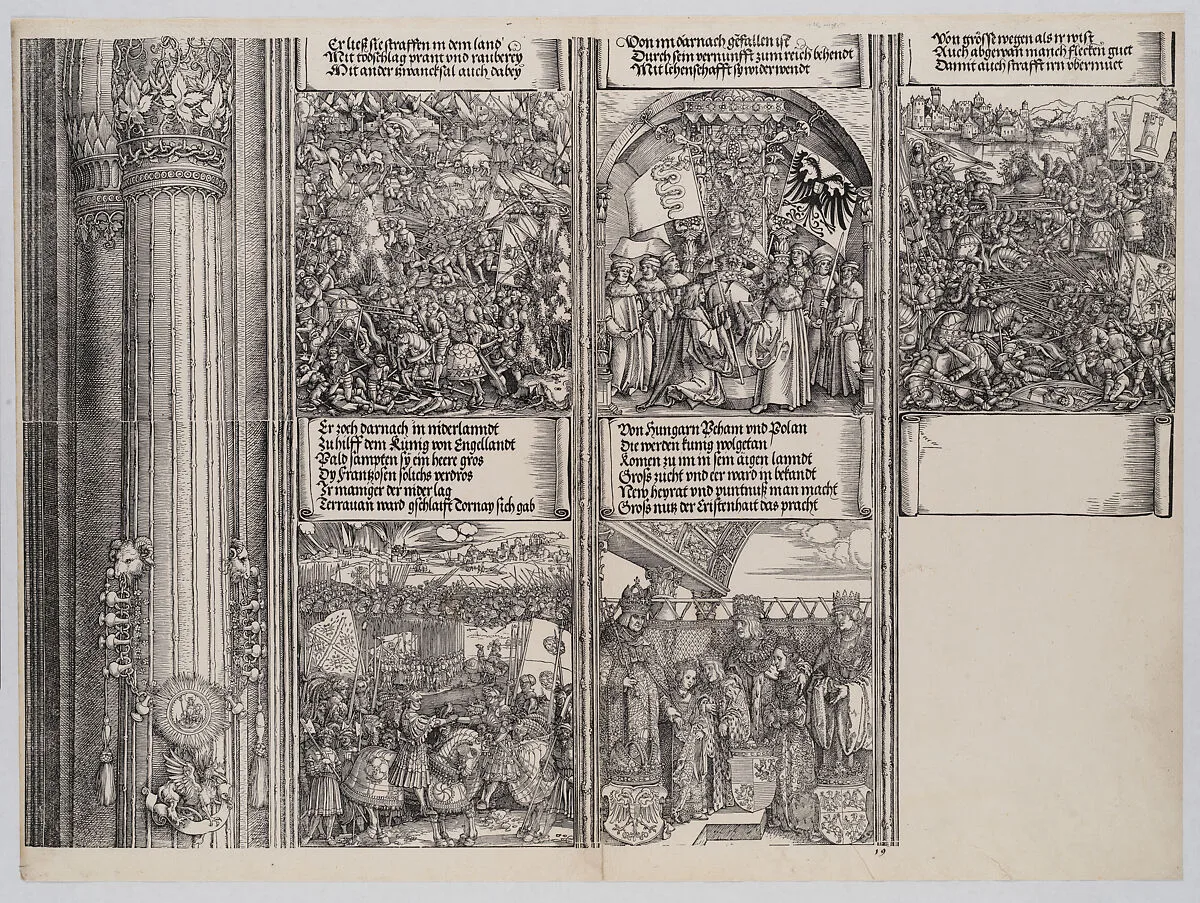 Er ließ sie straffen in dem land
Mit todschlag prant vnd rauberey
Mit ander zwancksal auch dabey
Von im darnach gefallen ist
Durch sein vernunfft zum reich behendt
Mit lehenschafft sy widerwendt
Von grösse wegen als ir wist
Auch abgewan manch flecken guet
Damit auch strafft irn vbermuet
Er zoch darnach in niderlanndt
Zu hilff dem Künig von Engellandt
Bald sampten sy ein heere gros
Dy Frantzosen solichs verdros
Ir maniger der nider lag
Terrauan ward gschlaift Tornay sich gab
Von Hungarn Beham vnd Polan
Die werden kunig wolgetan
Komen zu im in sein aigen lanndt
Gross zucht vnd eer ward in bekandt
New heyrat vnd puntnuß man macht
Gross nutz der Cristenhait das pracht
19